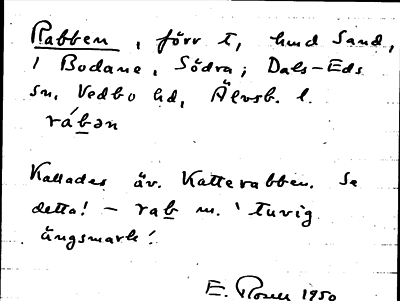 Rabben, förr t, hmd Sand,
1 Bodane, Södra; Dals-Eds
sn, Vedbo hd, Älvsb. l.
rábən
Kallades äv. Katterabben. Se
detta! - rab m. 'tuvig
ängsmark'.
E. Rosell 1950